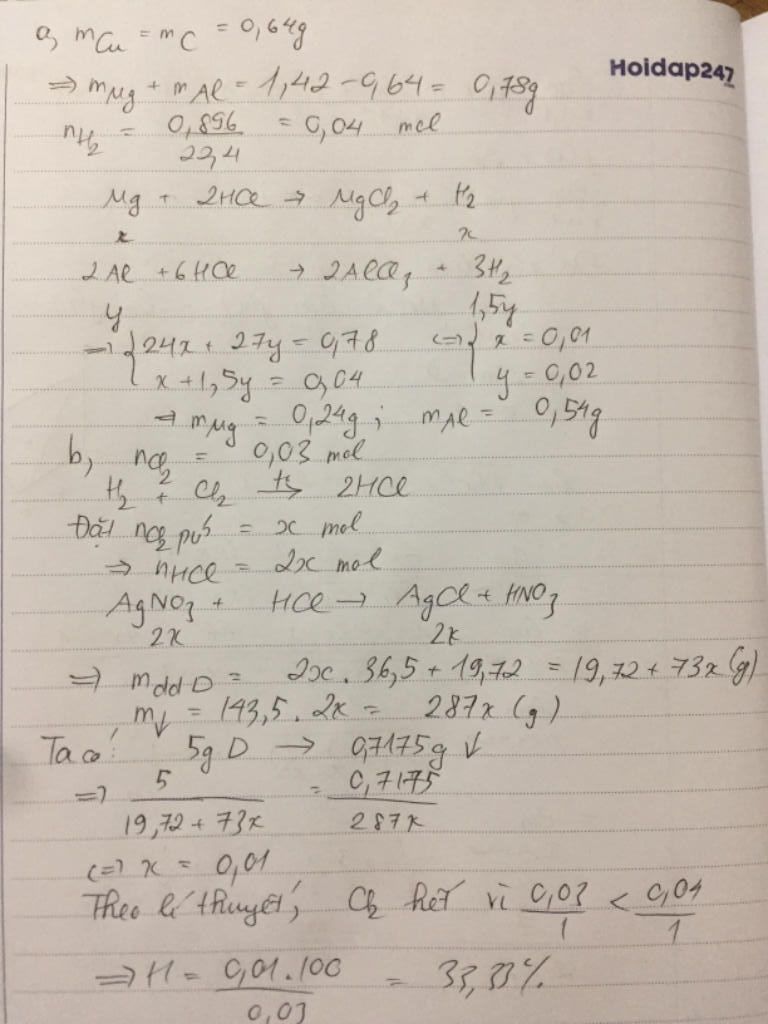 a, mCu = mC = 0,64g
Hoidap247
.com
=> mMg + mAl = 1,42 - 0,64 = 0,78g
nH2 = 0,896/22,4 = 0,04 mol
Mg + 2HCl → MgCl2 + H2
x x
2Al + 6HCl → 2AlCl3 + 3H2
y 1,5y
=> { 24x + 27y = 0,78 <=> { x = 0,01
x + 1,5y = 0,04 y = 0,02
=> mMg = 0,24g ; mAl = 0,54g
b, nCl2 = 0,03 mol
H2 + Cl2 → 2HCl
Đặt nCl2 pứ = x mol
=> nHCl = 2x mol
AgNO3 + HCl → AgCl + HNO3
2x 2x
=> mdd D = 2x . 36,5 + 19,72 = 19,72 + 73x (g)
m↓ = 143,5 . 2x = 287x (g)
Ta có: 5g D → 0,7175g ↓
=> 5/(19,72 + 73x) = 0,7175/287x
<=> x = 0,01
Theo lí thuyết, Cl2 hết vì 0,03/1 < 0,04/1
=> H = 0,01.100/0,03 = 33,33%